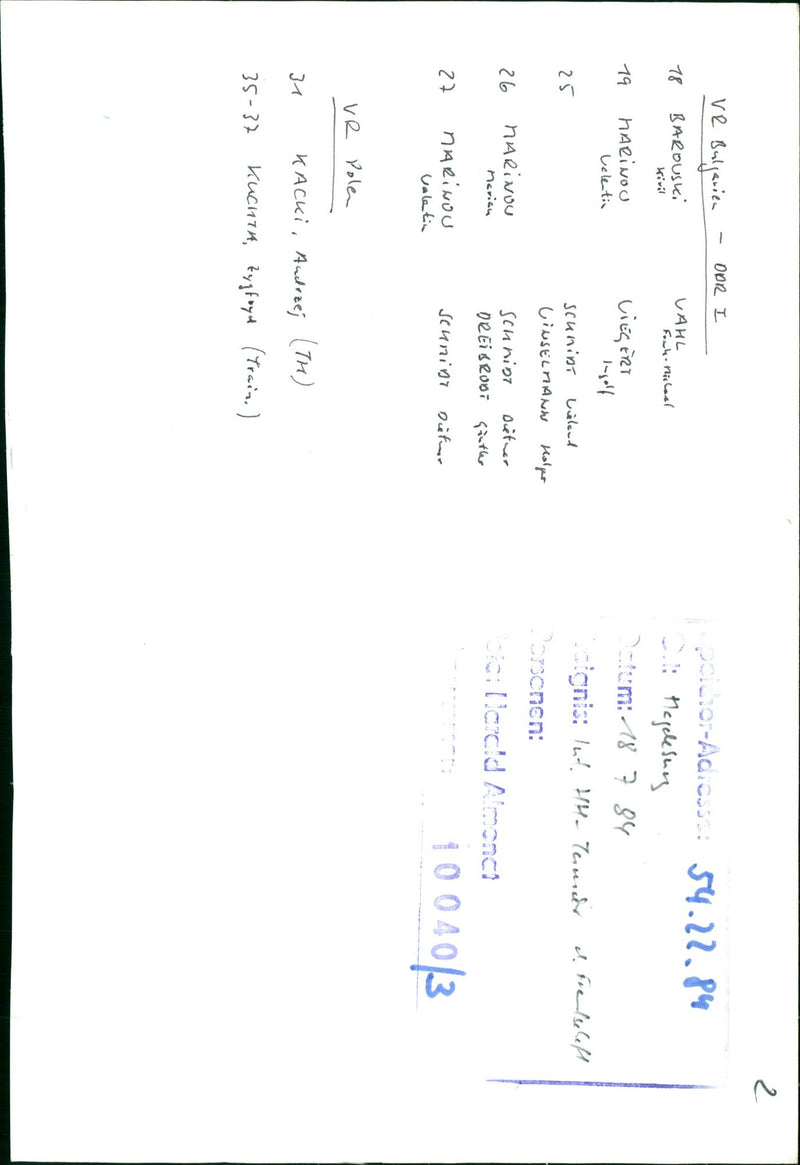 2
VR Bulgarien - DDR I
18 BAROVSKI VAHL
Kiril Frank-Michael
19 MARINOV WIEGERT
Valentin Ingolf
25 SCHMIDT Wieland
WINSELMANN Holger
26 MARINOV SCHMIDT Dietmar
Marian DREIBRODT Günther
27 MARINOV SCHMIDT Dietmar
Valentin
VR Polen
31 KACKI, Andrzej (TM)
35-37 KUCHTA, Zygfryd (Train.)
Speicher-Adresse: 54.22.84
Ort: Magdeburg
Datum: 18 7 84
Ereignis: Int. HH-Turnier d. Freundschaft
Personen:
Foto: Harald Almonat
10040/3